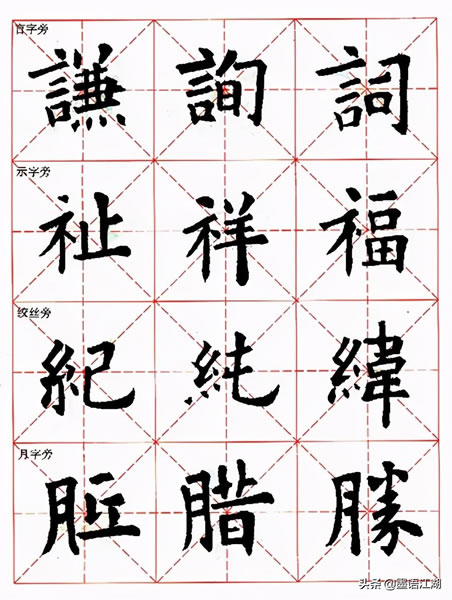 言字旁
謙 詢 詞
示字旁
祉 祥 福
绞丝旁
紀 純 緯
月字旁
腊 勝
头条 @墨语江湖